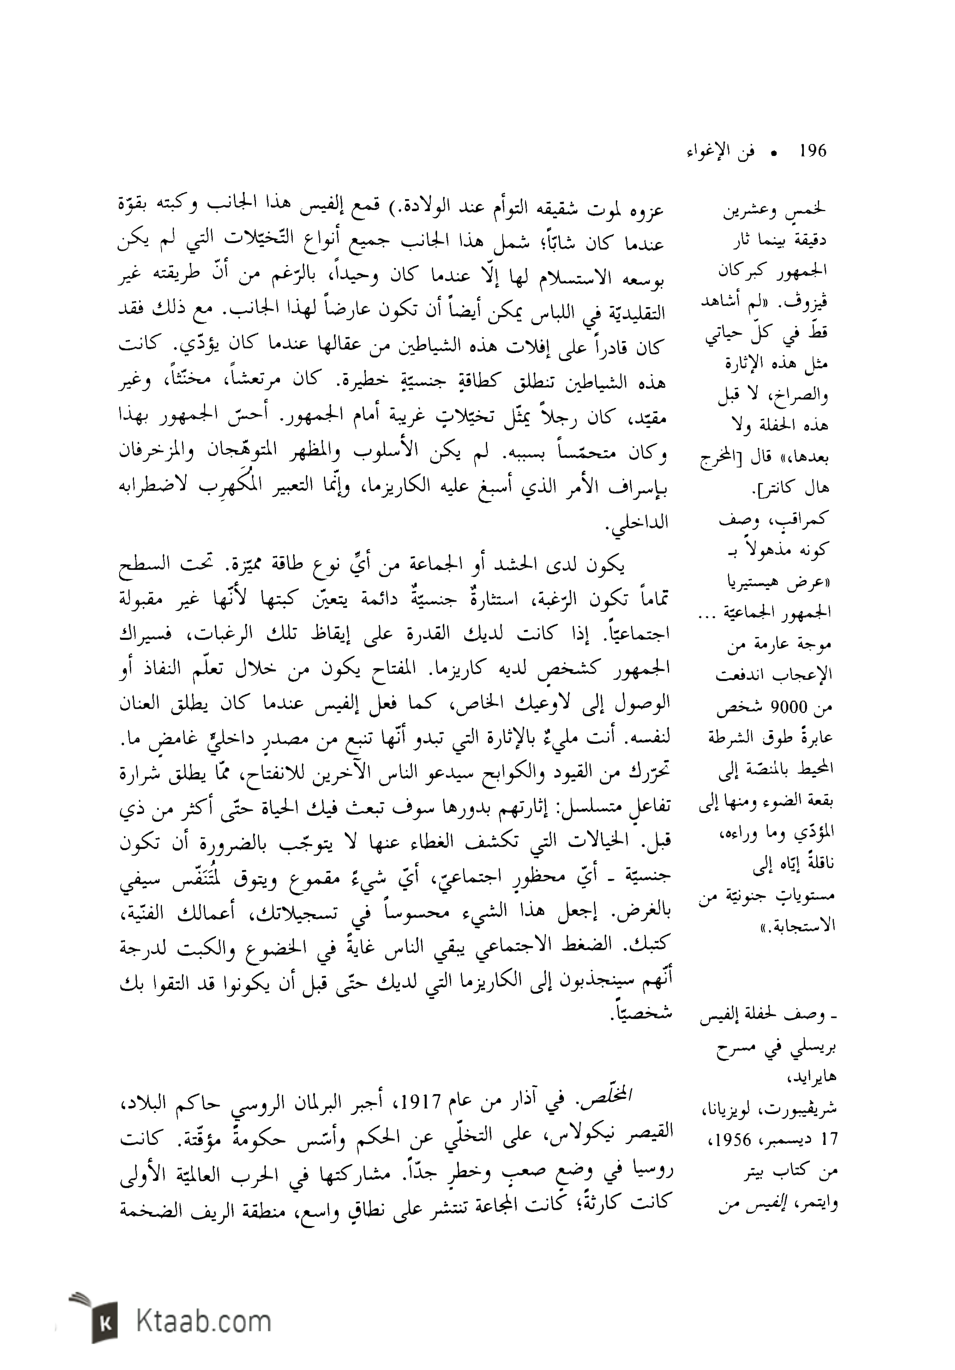 196 • فن الإغواء
عزوه لموت شقيقه التوأم عند الولادة.) قمع إلفيس هذا الجانب وكبته بقوّة
عندما كان شابّاً؛ شمل هذا الجانب جميع أنواع التّخيّلات التي لم يكن
بوسعه الاستسلام لها إلّا عندما كان وحيداً، بالرّغم من أنّ طريقته غير
التقليديّة في اللباس يمكن أيضاً أن تكون عارضاً لهذا الجانب. مع ذلك فقد
كان قادراً على إفلات هذه الشياطين من عقالها عندما كان يؤدّي. كانت
هذه الشياطين تنطلق كطاقةٍ جنسيّةٍ خطيرة. كان مرتعشاً، مخنّثاً، وغير
مقيّد، كان رجلاً يمثّل تخيّلاتٍ غريبة أمام الجمهور. أحسّ الجمهور بهذا
وكان متحمّساً بسببه. لم يكن الأسلوب والمظهر المتوهّجان والمزخرفان
بإسراف الأمر الذي أسبغ عليه الكاريزما، وإنّما التعبير المُكَهرِب لاضطرابه
الداخلي.
يكون لدى الحشد أو الجماعة من أيِّ نوع طاقة مميّزة. تحت السطح
تماماً تكون الرّغبة، استثارةٌ جنسيّةٌ دائمة يتعيّن كبتها لأنّها غير مقبولة
اجتماعيّاً. إذا كانت لديك القدرة على إيقاظ تلك الرغبات، فسيراك
الجمهور كشخصٍ لديه كاريزما. المفتاح يكون من خلال تعلّم النفاذ أو
الوصول إلى لاوعيك الخاص، كما فعل إلفيس عندما كان يطلق العنان
لنفسه. أنت مليءٌ بالإثارة التي تبدو أنّها تنبع من مصدرٍ داخليٍّ غامضٍ ما.
تحرّرك من القيود والكوابح سيدعو الناس الآخرين للانفتاح، ممّا يطلق شرارة
تفاعلٍ متسلسل: إثارتهم بدورها سوف تبعث فيك الحياة حتّى أكثر من ذي
قبل. الخيالات التي تكشف الغطاء عنها لا يتوجّب بالضرورة أن تكون
جنسيّة ـ أيّ محظورٍ اجتماعيّ، أيّ شيءٌ مقموع ويتوق لمُتَنَفّس سيفي
بالغرض. إجعل هذا الشيء محسوساً في تسجيلاتك، أعمالك الفنّية،
كتبك. الضغط الاجتماعي يبقي الناس غايةً في الخضوع والكبت لدرجة
أنّهم سينجذبون إلى الكاريزما التي لديك حتّى قبل أن يكونوا قد التقوا بك
شخصيّاً.
المخلّص. في آذار من عام 1917، أجبر البرلمان الروسي حاكم البلاد،
القيصر نيكولاس، على التخلّي عن الحكم وأسّس حكومةً مؤقّتة. كانت
روسيا في وضعٍ صعبٍ وخطرٍ جدّاً. مشاركتها في الحرب العالميّة الأولى
كانت كارثةً؛ كانت المجاعة تنتشر على نطاقٍ واسع، منطقة الريف الضخمة
لخمسٍ وعشرين
دقيقة بينما ثار
الجمهور كبركان
ڤيزوڤ. «لم أشاهد
قطّ في كلّ حياتي
مثل هذه الإثارة
والصراخ، لا قبل
هذه الحفلة ولا
بعدها،» قال [المخرج
هال كانتر].
كمراقبٍ، وصف
كونه مذهولاً بـ
«عرض هيستيريا
الجمهور الجماعيّة ...
موجة عارمة من
الإعجاب اندفعت
من 9000 شخص
عابرةً طوق الشرطة
المحيط بالمنصّة إلى
بقعة الضوء ومنها إلى
المؤدّي وما وراءه،
ناقلةً إيّاه إلى
مستوياتٍ جنونيّة من
الاستجابة.»
ـ وصف لحفلة إلفيس
بريسلي في مسرح
هايرايد،
شريڤيبورت، لويزيانا،
17 ديسمبر، 1956،
من كتاب بيتر
وايتمر، إلفيس من
Ktaab.com